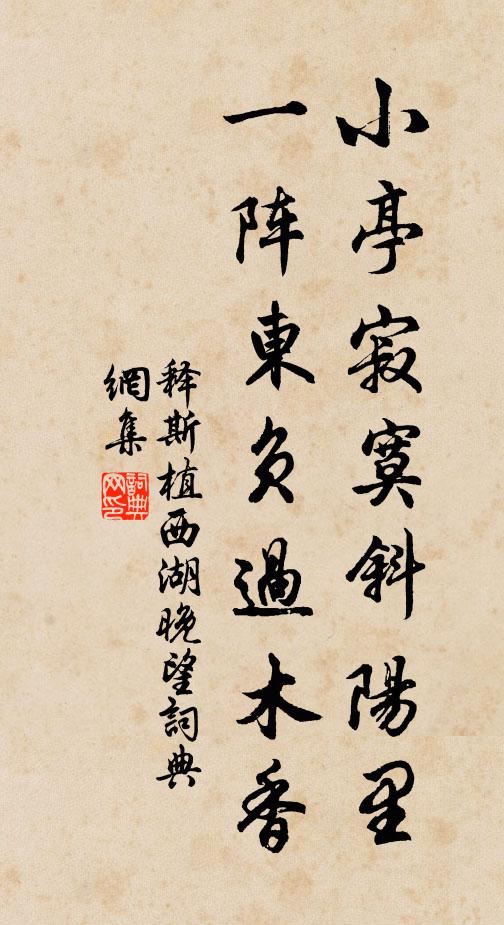 小亭寂寞斜陽里
一阵東风過木香
释斯植西湖晚望詞典
網集
詞典
网印